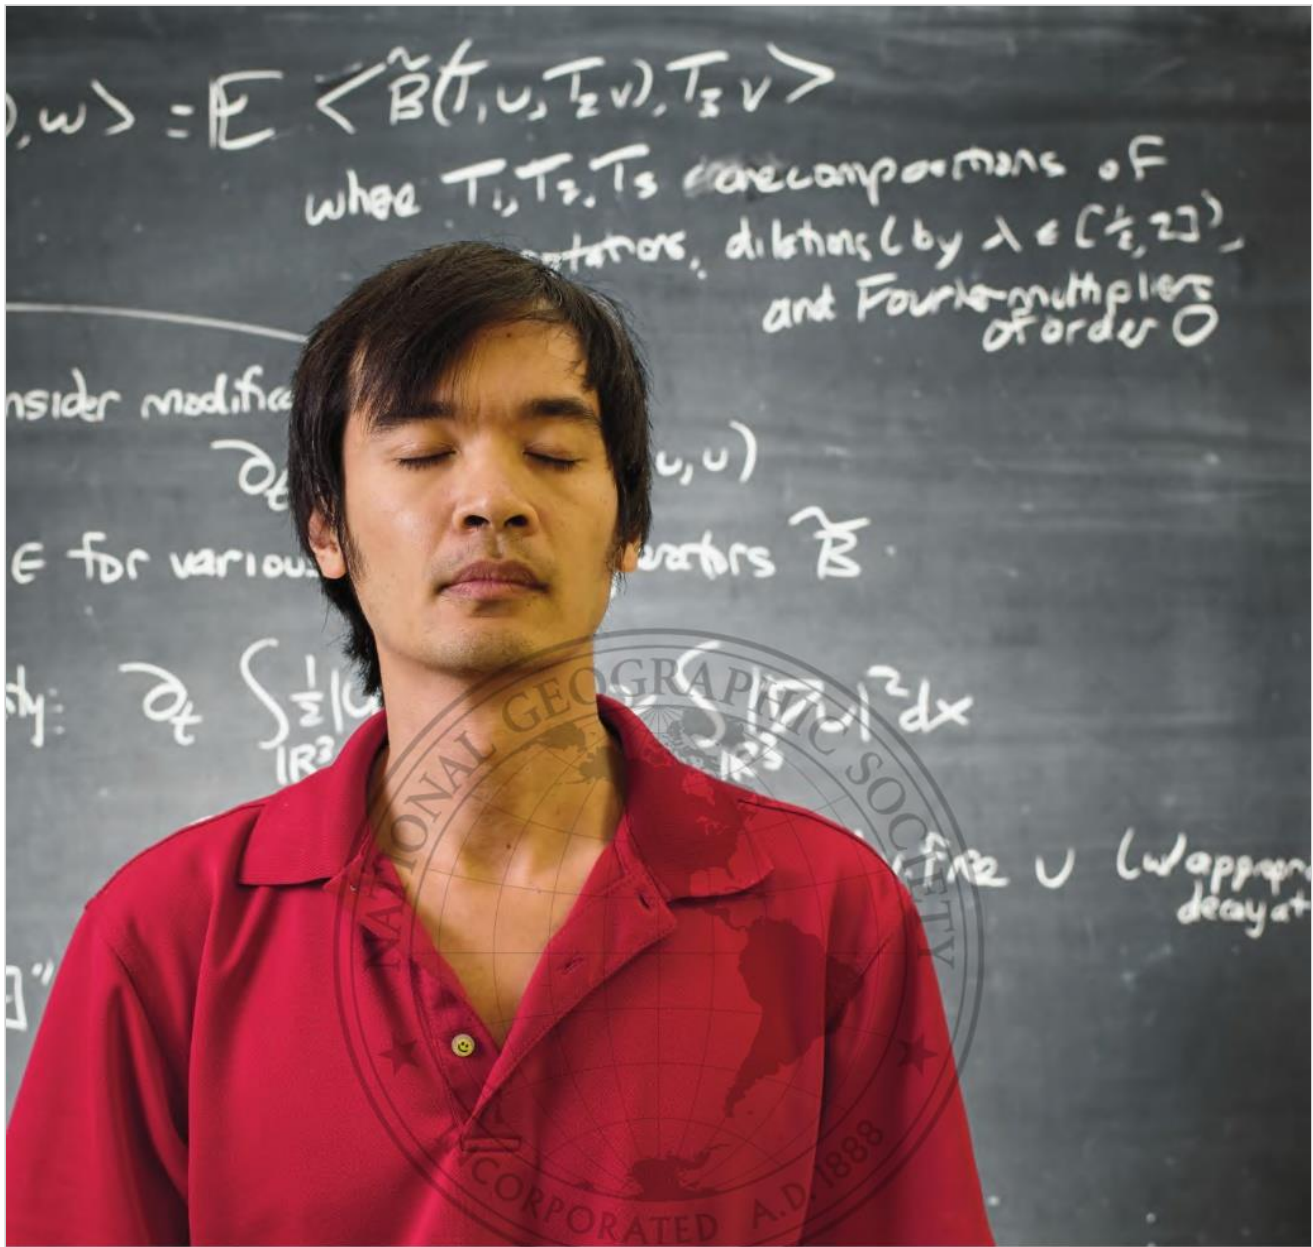 ), w> = 𝔼 <B̃(T₁u, T₂v), T₃v>
where T₁, T₂, T₃ are compositions of
rotations, dilations (by λ ∈ [½, 2]),
and Fourier multipliers
of order 0
nsider modifica
∂t u, u)
E for various erators B̃.
ty: ∂t ∫ℝ³ ½|u ∫ℝ³ |∇u|² dx
fine u (w/ appropri
decay at
]"
NATIONAL GEOGRAPHIC SOCIETY
INCORPORATED A.D. 1888